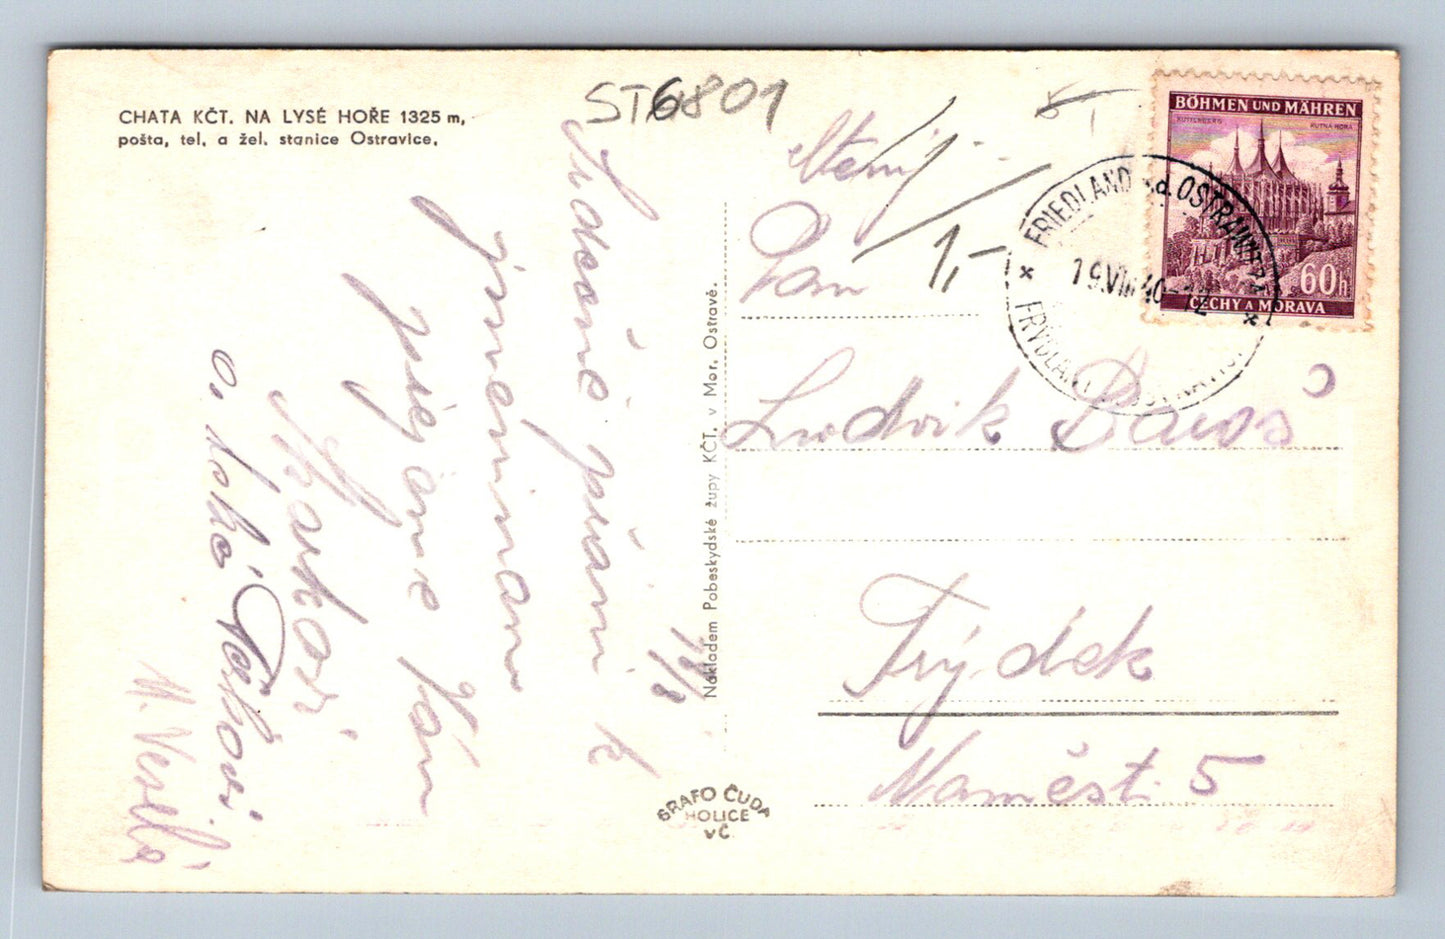 CHATA KČT. NA LYSÉ HOŘE 1325 m,
pošta, tel. a žel. stanice Ostravice.
ST6801
1,-
BÖHMEN UND MÄHREN
KUTTENBERG KUTNÁ HORA
60h
ČECHY A MORAVA
FRIEDLAND a.d. OSTRAWITZA
19.VIII.40-12
FRÝDLANT
Pan
Ludvik
Frýdek
Naměsti 5
Srdečné přání k
jmeninam
přejeme Vám
M. Veselá
Nákladem Pobeskydské župy KČT. v Mor. Ostravě.
GRAFO ČUDA
HOLICE
v Č.